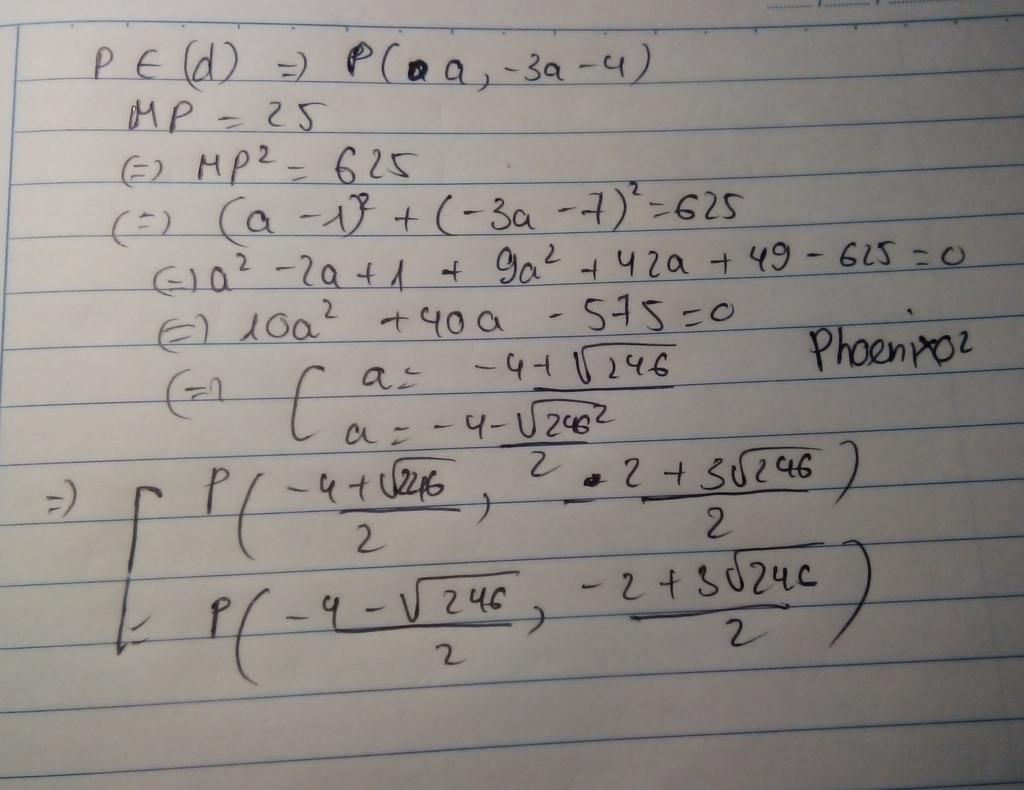 P ∈ (d) => P(a, -3a-4)
MP = 25
(=) MP² = 625
(=) (a-1)² + (-3a-7)² = 625
(=) a² - 2a + 1 + 9a² + 42a + 49 - 625 = 0
(=) 10a² + 40a - 575 = 0
(=) [ a = (-4+√246)/2
a = (-4-√246)/2
Phoenix02
=) [ P((-4+√246)/2, (-2+3√246)/2)
P((-4-√246)/2, (-2+3√246)/2)